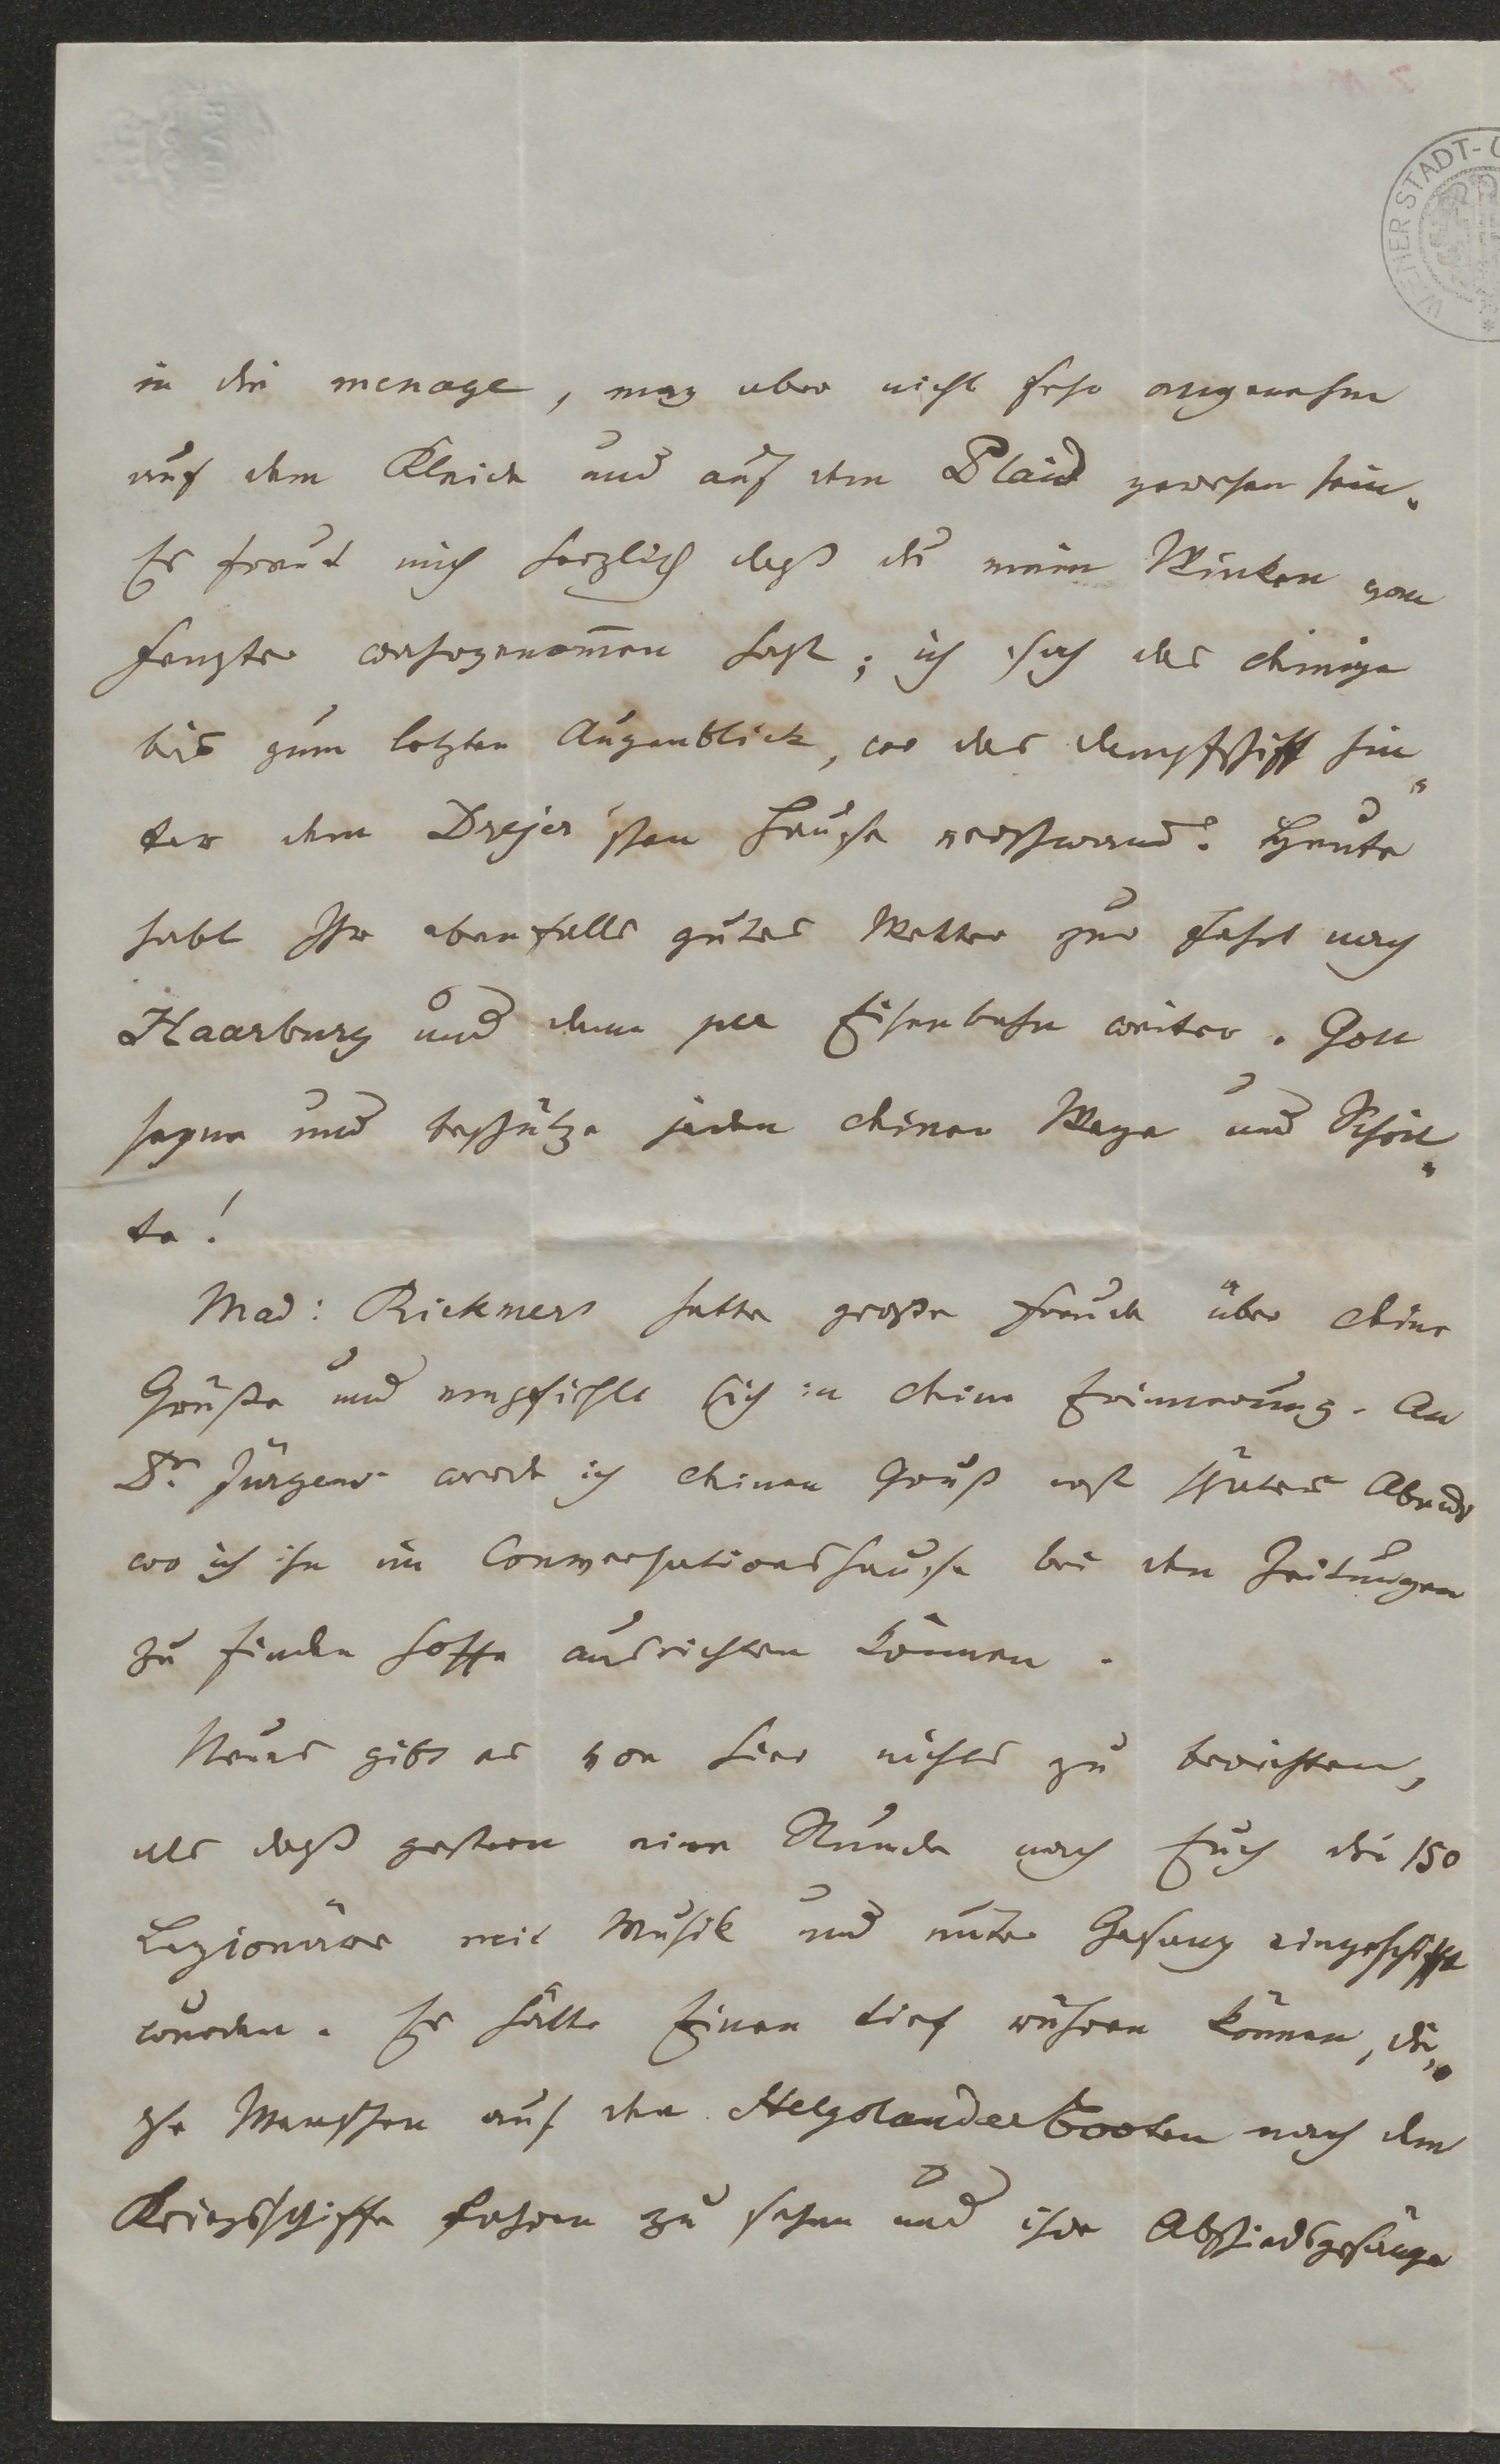 WIENER STADT-
in die menage, mag aber nicht sehr angenehm
auf dem Kleide und auf dem Plaid gewesen sein.
Es freut mich herzlich daß du mein Winken vom
Fenster wahrgenom̄en hast; ich sah das deinige
bis zum letzten Augenblick, wo das Dampfschiff hin„
ter dem Drejer'schen Hause verschwand. Heute
habt Ihr ebenfalls gutes Wetter zur Fahrt nach
Haarburg und dann per Eisenbahn weiter. Gott
segne und beschütze jeden deiner Wege und Schrit„
te!
Mad: Rickmers hatte große Freude über deine
Grüße und empfiehlt sich in deine Erinnerung. An
Dr. Jürgens werde ich deinen Gruß erst später Abends
wo ich ihn im Conversationshause bei den Zeitungen
zu finden hoffe ausrichten können.
Neues gibt es von hier nichts zu berichten,
als daß gestern eine Stunde nach Euch die 150
Legionäre mit Musik und unter Gesang eingeschifft
wurden. Es hätte Einen tief rühren können, die„
se Menschen auf den Helgolanderbooten nach dem
Kriegsschiffe fahren zu sehen und ihre Abschiedsgesänge